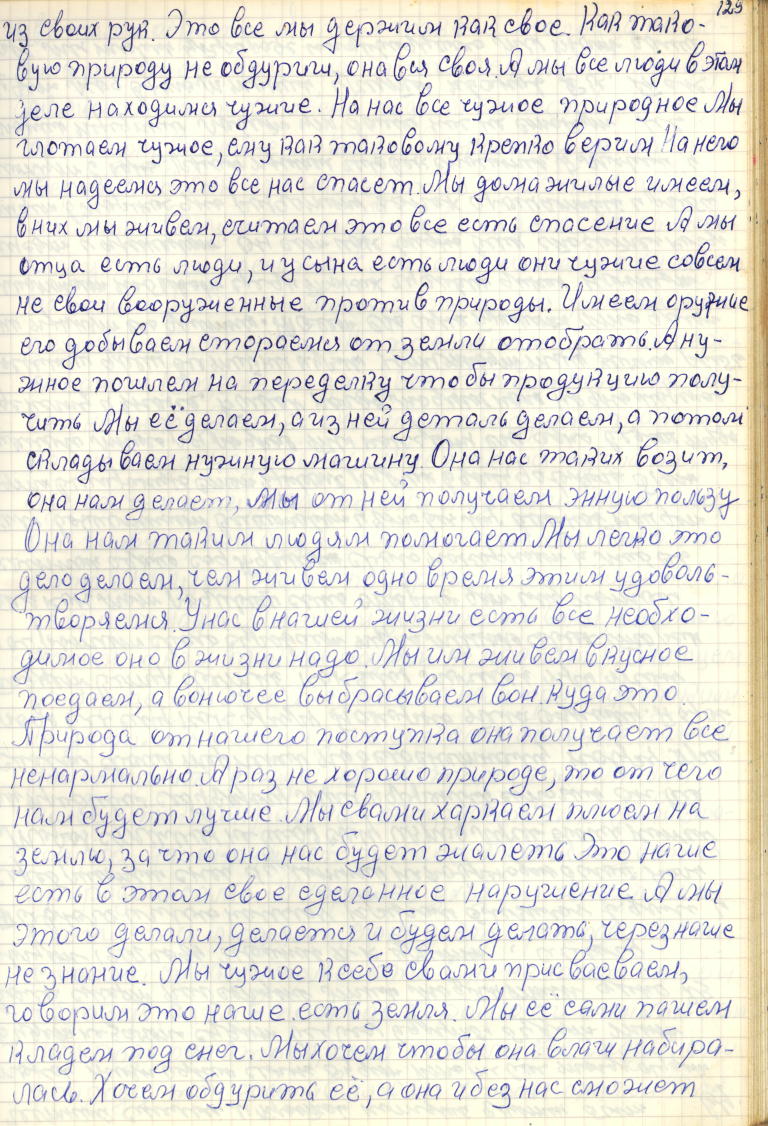 129
из своих рук. Это все мы держим как свое. Как тако-
вую природу не обдуриш, она вся своя. А мы все люди в этом
деле находимся чужие. На нас все чужое природное Мы
глотаем чужое, ему как таковому крепко верим На него
мы надеемся это все нас спасет. Мы дома жилые имеем,
в них мы живем, считаем это все есть спасение А мы
отца есть люди, и у сына есть люди они чужие совсем
не свои вооруженные против природы. Имеем оружие
его добываем стораемся от земли отобрать. А ну-
жное пошлем на переделку чтобы продукцию полу-
чить Мы её делаем, а из ней деталь делаем, а потом
складываем нужную машину. Она нас таких возит,
она нам делает, мы от ней получаем энную пользу
Она нам таким людям помогает Мы легко это
дело делаем, чем живем одно время этим удоволь-
творяемся. У нас в нашей жизни есть все необхо-
димое оно в жизни надо. Мы им живем вкусное
поедаем, а вонючее выбрасываем вон. куда это.
Природа от нашего поступка она получает все
ненармально. А раз не хорошо природе, то от чего
нам будет лучше. Мы свами харкаем плюем на
землю, за что она нас будет жалеть Это наше
есть в этом свое сделанное нарушение А мы
этого делали, делается и будем делать, через наше
не знание. Мы чужое к себе свами присваеваем,
говорим это наше есть земля. Мы её сами пашем
кладем под снег. Мы хочем чтобы она влаги набира-
лась. Хочем обдурить её, а она и без нас сможет